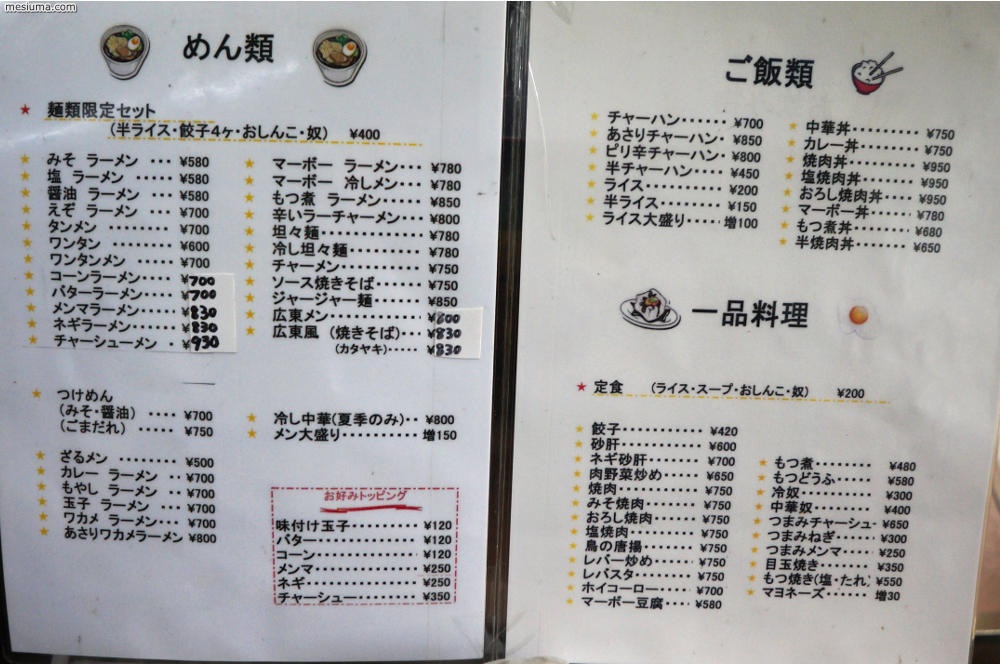 mesiuma.com
めん類
★ 麺類限定セット
(半ライス・餃子4ヶ・おしんこ・奴) ¥400
★ みそ ラーメン ··· ¥580
★ 塩 ラーメン ····· ¥580
★ 醤油 ラーメン ··· ¥580
★ えぞ ラーメン ··· ¥700
★ タンメン ········ ¥700
★ ワンタン ······· ¥600
★ ワンタンメン ···· ¥700
★ コーンラーメン···· ¥700
★ バターラーメン···· ¥700
★ メンマラーメン···· ¥830
★ ネギラーメン····· ¥830
★ チャーシューメン · ¥930
★ マーボー ラーメン·· ¥780
★ マーボー 冷しメン·· ¥780
★ もつ煮 ラーメン··· ¥850
★ 辛いラーチャーメン·· ¥800
★ 坦々麺·········· ¥780
★ 冷し坦々麺······· ¥780
★ チャーメン······· ¥750
★ ソース焼きそば····· ¥750
★ ジャージャー麺····· ¥850
★ 広東メン········ ¥800
★ 広東風 (焼きそば)·· ¥830
(カタヤキ)····· ¥830
★ つけめん
(みそ・醤油) ···· ¥700
(ごまだれ) ····· ¥750
★ ざるメン ········ ¥500
★ カレー ラーメン ··· ¥700
★ もやし ラーメン ··· ¥700
★ 玉子 ラーメン ···· ¥700
★ ワカメ ラーメン··· ¥700
★ あさりワカメラーメン ¥800
★ 冷し中華(夏季のみ)·· ¥800
★ メン大盛り········ 増150
お好みトッピング
味付け玉子······· ¥120
バター·········· ¥120
コーン·········· ¥120
メンマ·········· ¥250
ネギ··········· ¥250
チャーシュー······ ¥350
ご飯類
★ チャーハン······ ¥700
★ あさりチャーハン· ¥850
★ ピリ辛チャーハン· ¥800
★ 半チャーハン···· ¥450
★ ライス········· ¥200
★ 半ライス······· ¥150
★ ライス大盛り···· 増100
★ 中華丼········· ¥750
★ カレー丼········ ¥750
★ 焼肉丼········· ¥950
★ 塩焼肉丼······· ¥950
★ おろし焼肉丼···· ¥950
★ マーボー丼······ ¥780
★ もつ煮丼······· ¥680
★ 半焼肉丼······· ¥650
一品料理
★ 定食 (ライス・スープ・おしんこ・奴) ¥200
★ 餃子··········· ¥420
★ 砂肝··········· ¥600
★ ネギ砂肝······· ¥700
★ 肉野菜炒め····· ¥650
★ 焼肉·········· ¥750
★ みそ焼肉······· ¥750
★ おろし焼肉····· ¥750
★ 塩焼肉········ ¥750
★ 鳥の唐揚······ ¥750
★ レバー炒め····· ¥750
★ レバスタ······· ¥750
★ ホイコーロー···· ¥700
★ マーボー豆腐···· ¥580
★ もつ煮········· ¥480
★ もつどうふ······ ¥580
★ 冷奴·········· ¥300
★ 中華奴········ ¥400
★ つまみチャーシュー ¥650
★ つまみねぎ····· ¥300
★ つまみメンマ···· ¥250
★ 目玉焼き······ ¥350
★ もつ焼き(塩・たれ) ¥550
★ マヨネーズ····· 増30